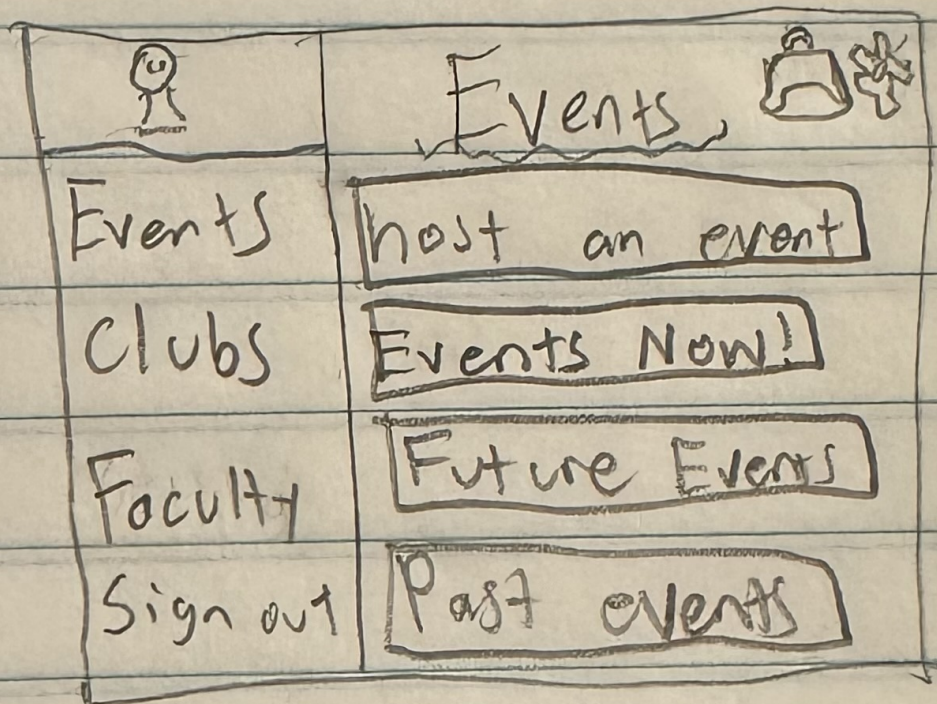 Events
Events
Clubs
Faculty
Sign out
host an event
Events Now!
Future Events
Past events